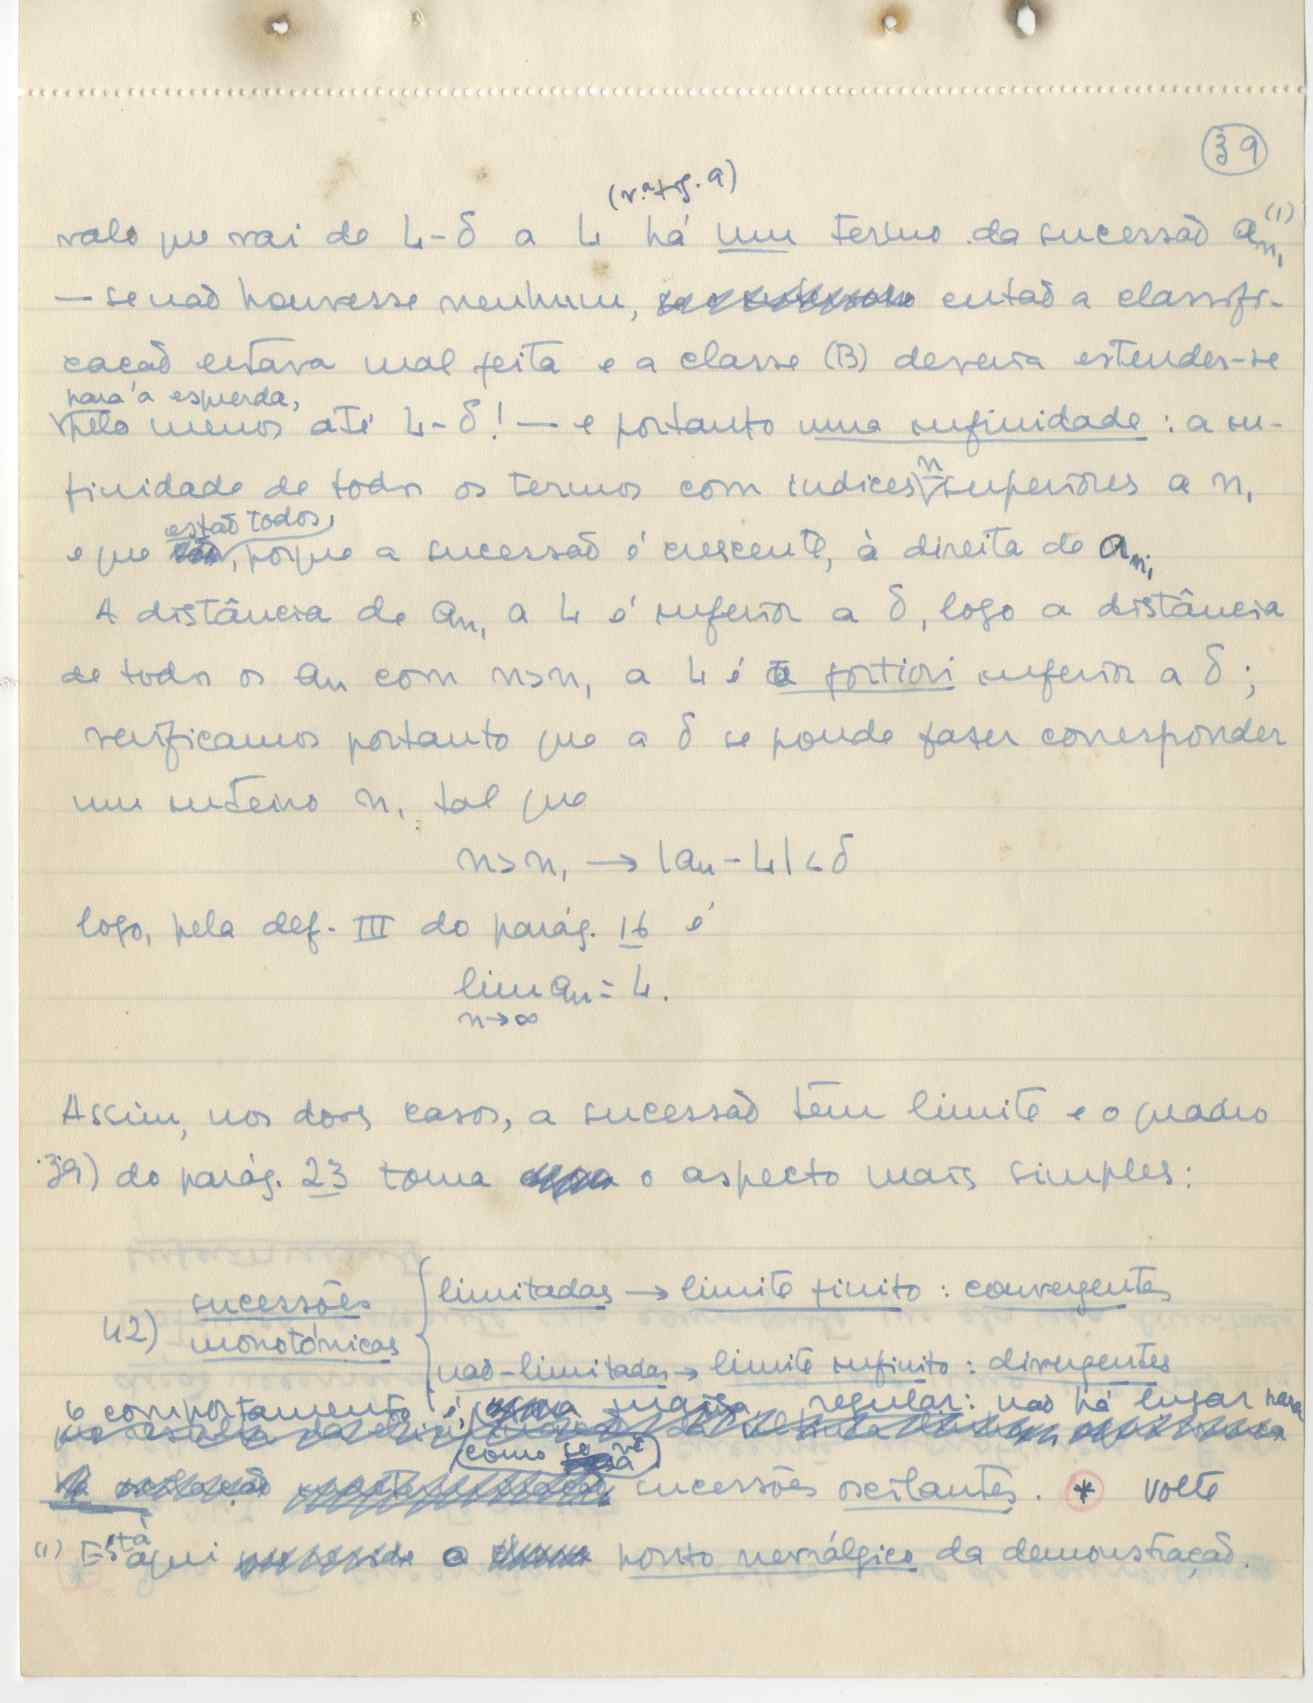 39
(v. fig. 9)
valo que vai de L-δ a L há um termo da sucessão aₙ₁ (1)
— se não houvesse nenhum, então a classifi-
cação estava mal feita e a classe (B) deveria estender-se
para a esquerda,
pelo menos até L-δ! — e portanto uma infinidade: a in-
finidade de todos os termos com índices n superiores a n₁
estão todos,
e que, porque a sucessão é crescente, à direita de aₙ₁
A distância de aₙ₁ a L é inferior a δ, logo a distância
de todos os aₙ com n>n₁ a L é a fortiori inferior a δ;
verificamos portanto que a δ se poude fazer corresponder
um inteiro n₁ tal que
n>n₁ → |aₙ - L| < δ
logo, pela def. III do parág. 16 é
lim aₙ = L.
n→∞
Assim, nos dois casos, a sucessão tem limite e o quadro
39) do parág. 23 toma o aspecto mais simples:
limitadas → limite finito: convergentes
42) sucessões
monotónicas
não-limitadas → limite infinito: divergentes
o comportamento é, regular: não há lugar para
(como se vê)
sucessões oscilantes. * volte
(1) Está aqui o ponto nevrálgico da demonstração.